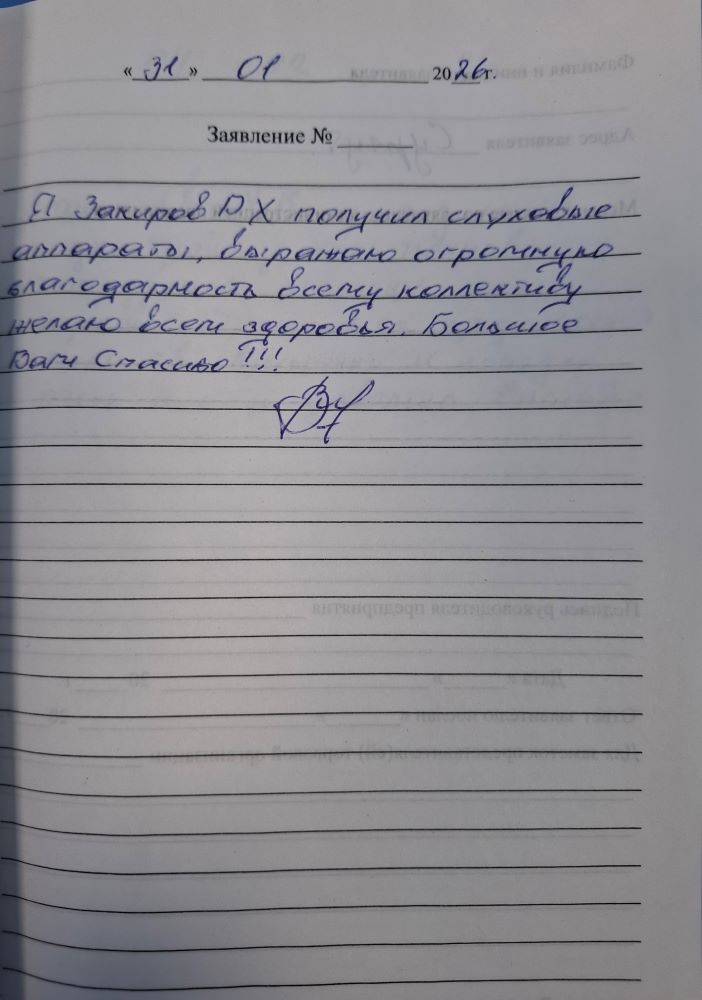 « 31 » 01 2026 г.
Заявление №
Я Закиров Д Х получил слуховые
аппараты, выражаю огромную
благодарность всему коллективу
желаю всем здоровья. Большое
Вам Спасибо!!!